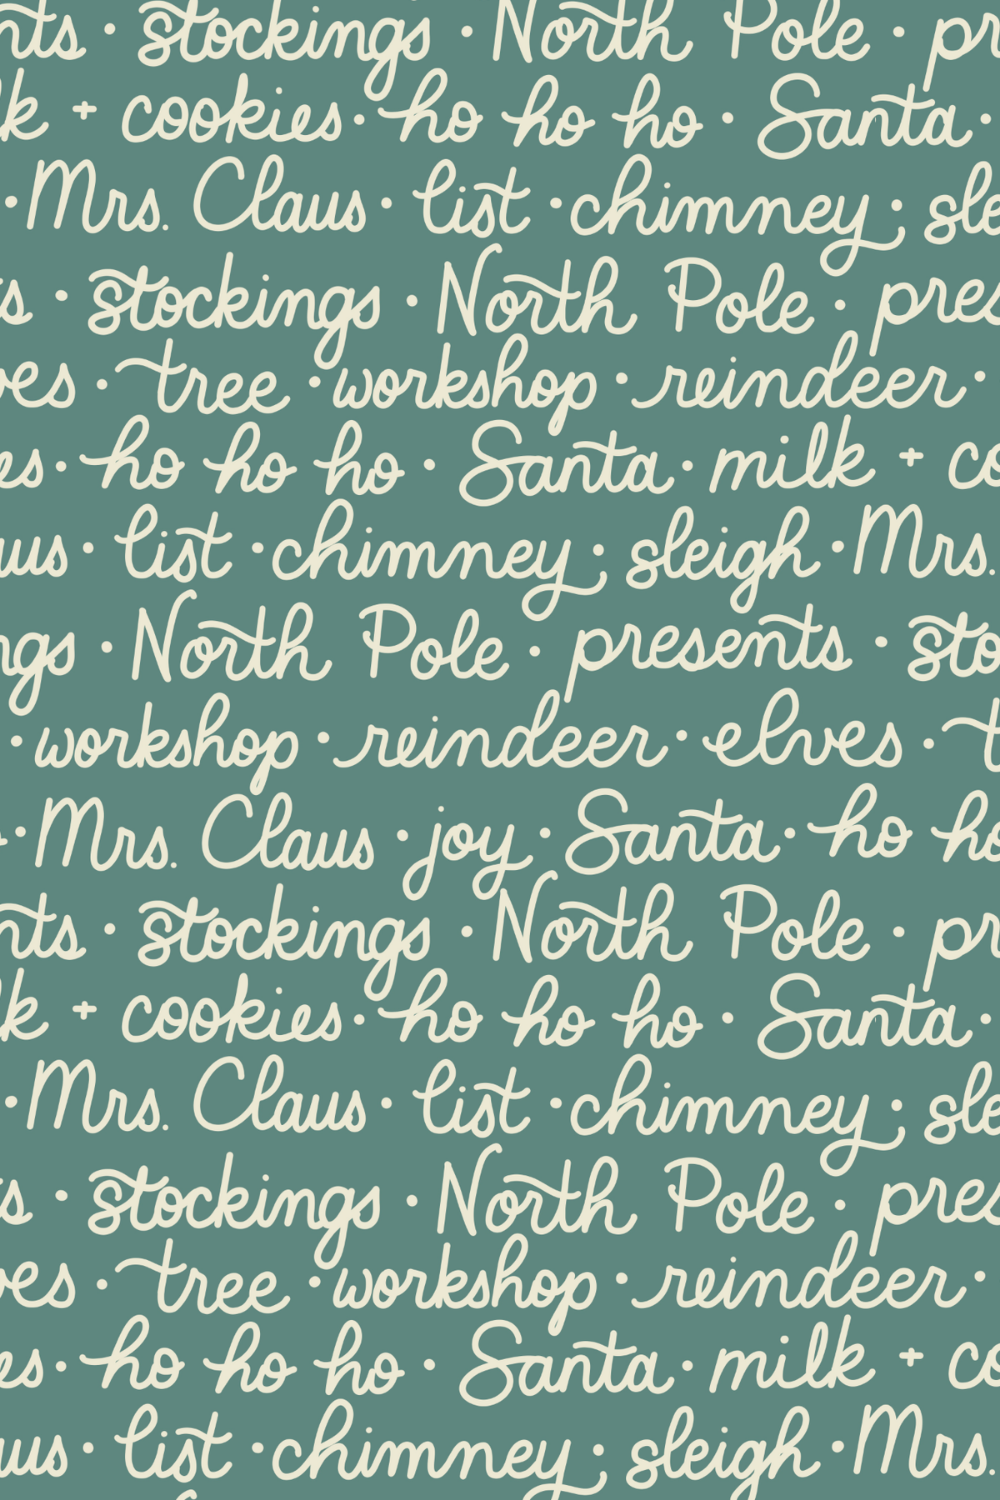 nts · stockings · North Pole · pr
lk + cookies · ho ho ho · Santa ·
· Mrs. Claus · list · chimney · sle
s · stockings · North Pole · pres
ves · tree · workshop · reindeer ·
es · ho ho ho · Santa · milk + co
aus · list · chimney · sleigh · Mrs.
ngs · North Pole · presents · sto
· workshop · reindeer · elves · t
· Mrs. Claus · joy · Santa · ho ho
nts · stockings · North Pole · pr
lk + cookies · ho ho ho · Santa ·
· Mrs. Claus · list · chimney · sle
s · stockings · North Pole · pres
ves · tree · workshop · reindeer ·
es · ho ho ho · Santa · milk + co
aus · list · chimney · sleigh · Mrs.